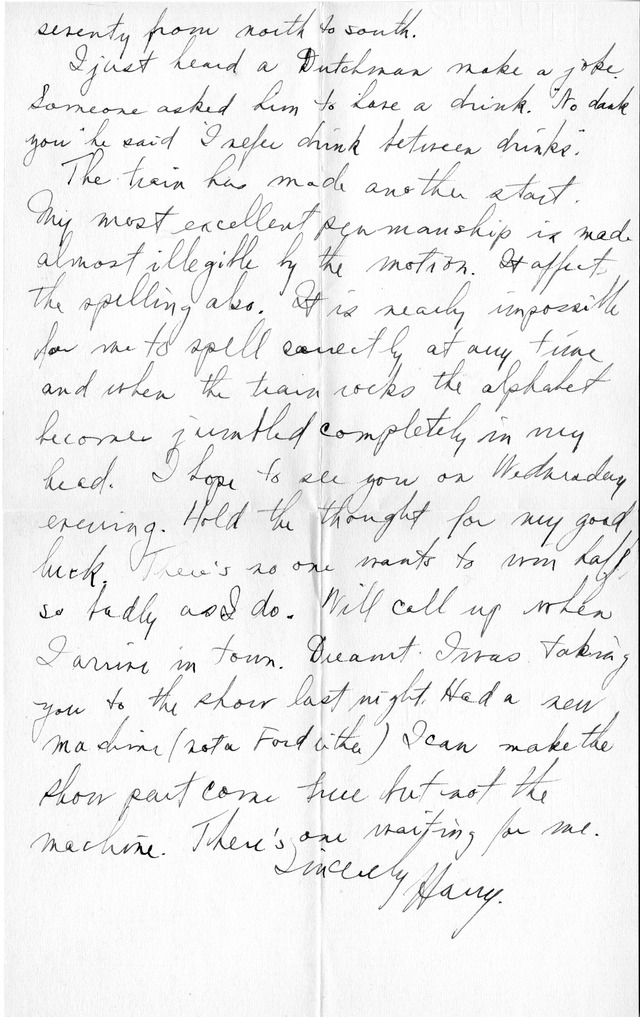 seventy from north to south.
I just heard a Dutchman make a joke.
Someone asked him to have a drink. "No dank
you" he said "I nefer drink between drinks".
The train has made another start.
My most excellent penmanship is made
almost illegible by the motion. It affects
the spelling also. It is nearly impossible
for me to spell correctly at any time
and when the train rocks the alphabet
becomes jumbled completely in my
head. I hope to see you on Wednesday
evening. Hold the thought for my good
luck. There's no one wants to win half
so badly as I do. Will call up when
I arrive in town. Dreamt I was taking
you to the show last night. Had a new
machine (not a Ford either) I can make the
show part come true but not the
machine. There's one waiting for me.
Sincerely
Harry.